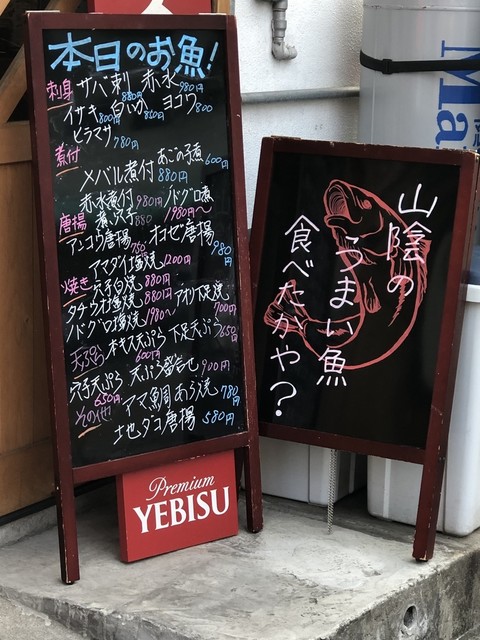 本日のお魚!
刺身 サバ刺 880円 赤水 980円
イサキ 800円 白いか 880円 ヨコワ 800
ヒラマサ 780円
煮付 あごの子煮 600円
メバル煮付 880円
赤水煮付 980円 ノドグロ煮 1980円～
煮穴子 880
唐揚 アンコウ唐揚 750 オコゼ唐揚 980円
アマダイ塩焼 1200円
焼き 穴子白焼 880円
タチウオ塩焼 880円 アオリ下足焼 700円
ノドグロ塩焼 1980～
天ぷら 本キス天ぷら 600円 下足天ぷら 650
穴子天ぷら 650円 天ぷら盛合せ 900円
その他 アマ鯛あら焼 780円
地ダコ唐揚 580円
Premium
YEBISU
山陰の
うまい魚
食べたかや?
Ma